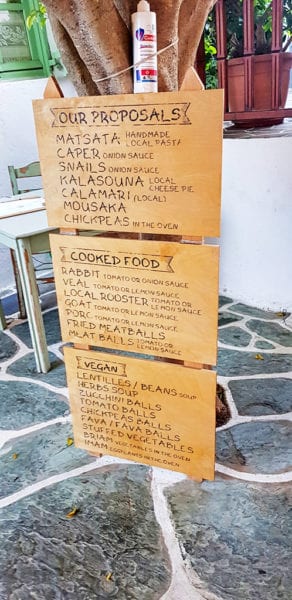 OUR PROPOSALS
MATSATA HANDMADE LOCAL PASTA
CAPER ONION SAUCE
SNAILS ONION SAUCE
KALASOUNA LOCAL CHEESE PIE
CALAMARI (LOCAL)
MOUSAKA
CHICKPEAS IN THE OVEN
COOKED FOOD
RABBIT TOMATO OR ONION SAUCE
VEAL TOMATO OR LEMON SAUCE
LOCAL ROOSTER TOMATO OR LEMON SAUCE
GOAT TOMATO OR LEMON SAUCE
PORC TOMATO OR LEMON SAUCE
FRIED MEATBALLS
MEAT BALLS TOMATO OR LEMON SAUCE
VEGAN
LENTILLES / BEANS SOUP
HERBS SOUP
ZUCCHINI BALLS
TOMATO BALLS
CHICKPEAS BALLS
FAVA / FAVA BALLS
STUFFED VEGETABLES
BRIAM VEGETABLES IN THE OVEN
IMAM EGGPLANTS IN THE OVEN